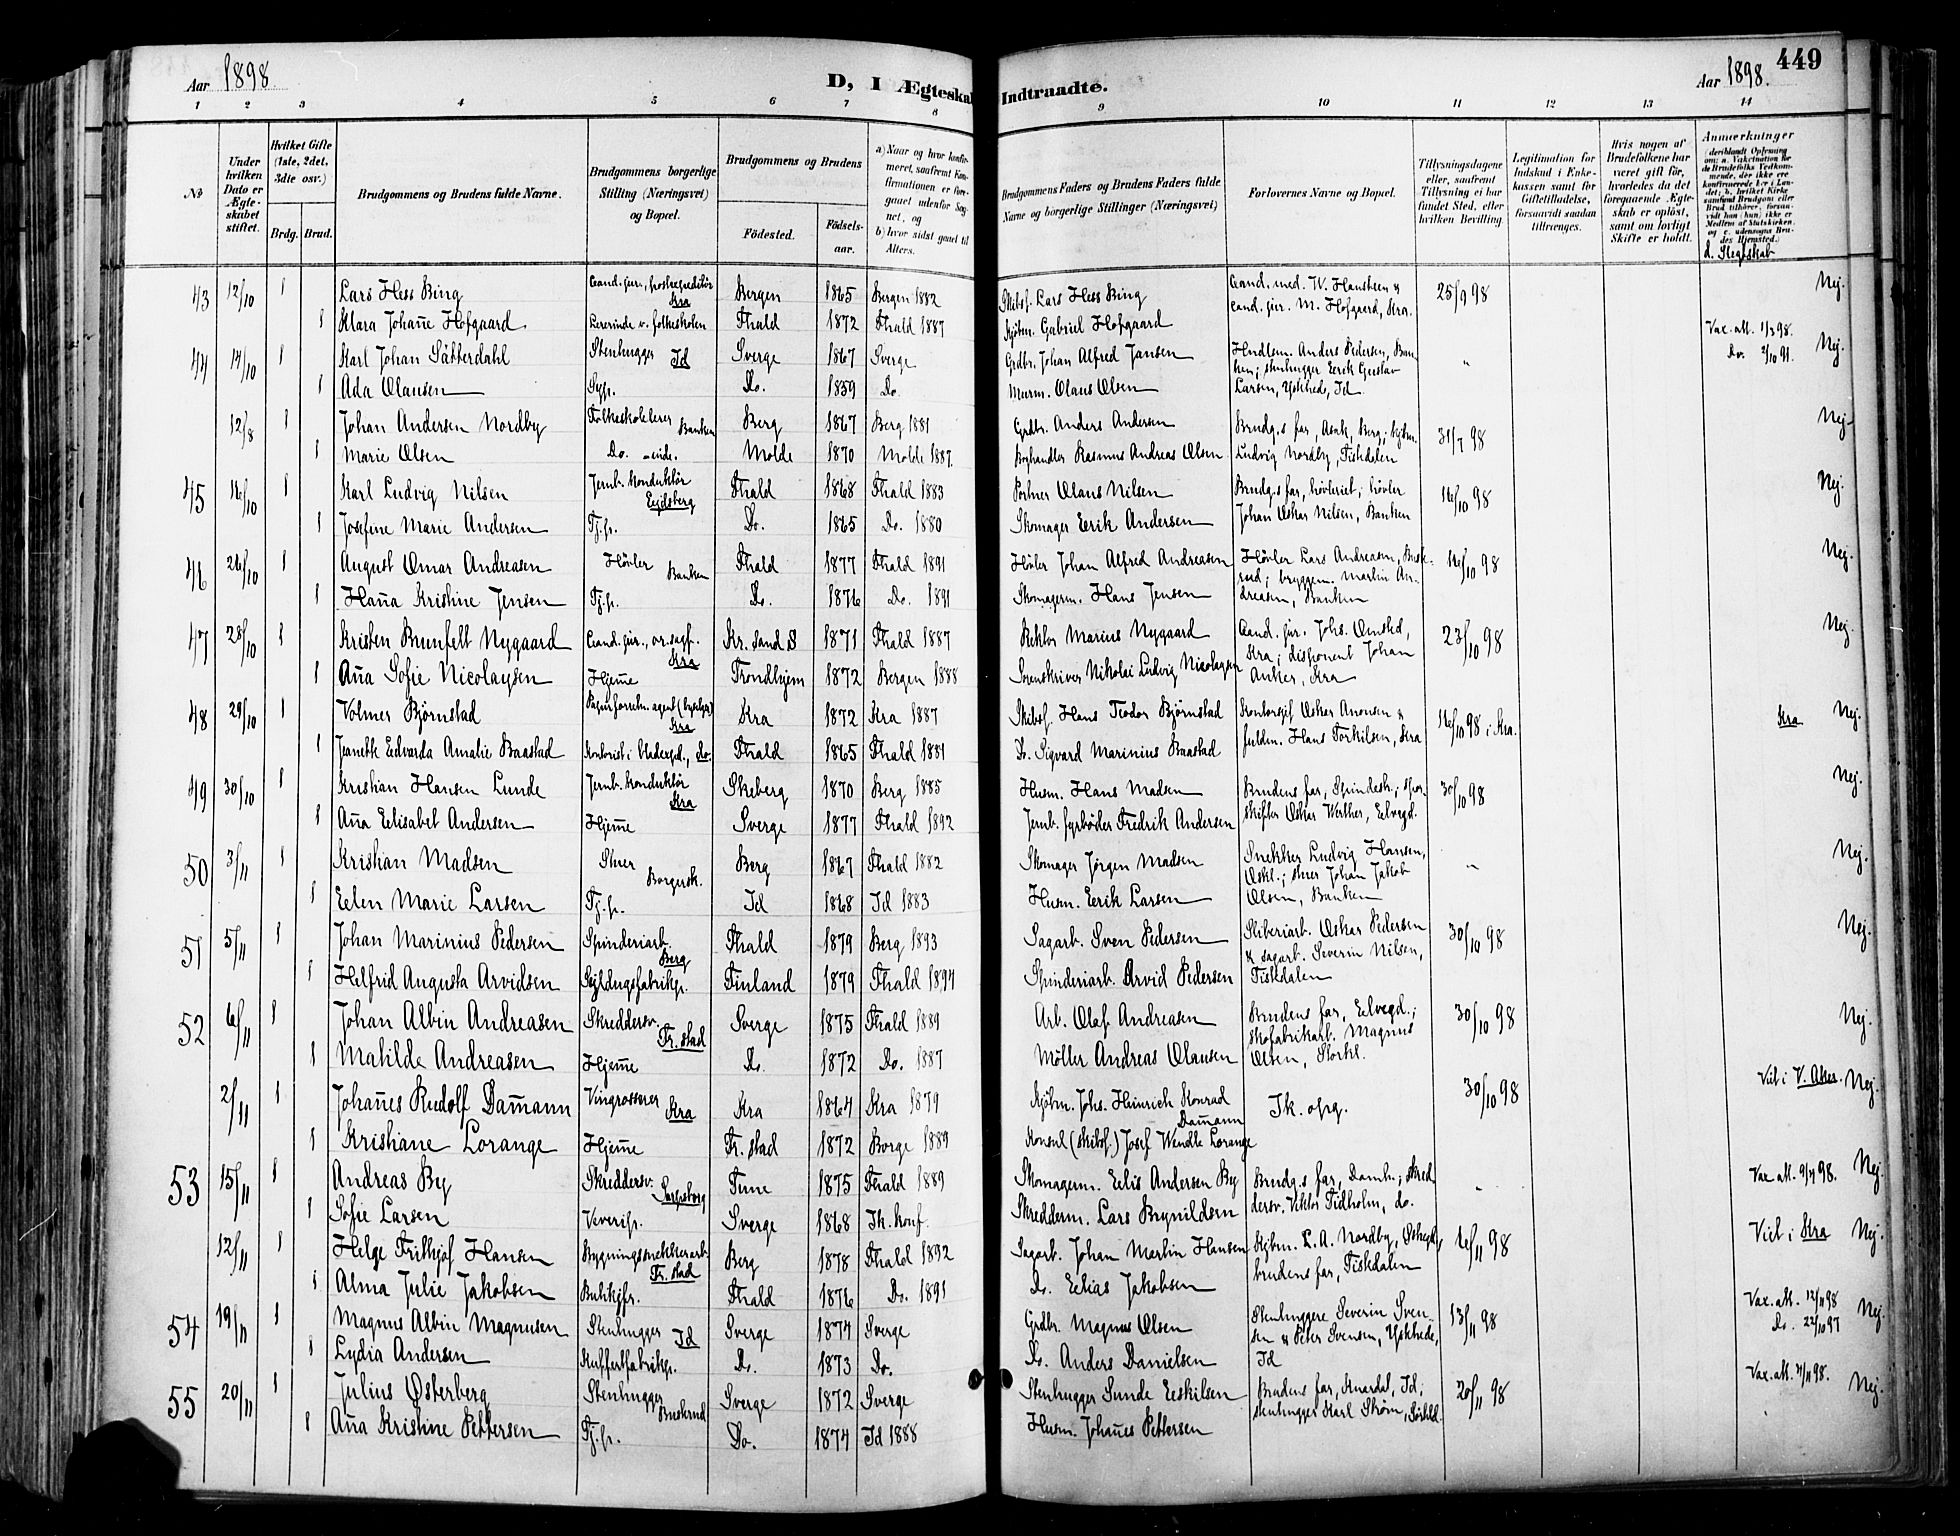 Aar 1898.
D, I Ægteskab Indtraadte.
Aar 1898.
449
1 2 3 4 5 6 7 8 9 10 11 12 13 14
No
Under hvilken Dato er Ægteskabet stiftet.
Hvilket Gifte (1ste, 2det, 3die osv.)
Brdg. Brud.
Brudgommens og Brudens fulde Navne.
Brudgommens borgerlige Stilling (Næringsvei) og Bopæl.
Brudgommens og Brudens
Fødested.
Fødselsaar.
a) Naar og hvor konfirmeret, saafremt Konfirmationen er foregaaet udenfor Sognet, og
b) hvor sidst gaaet til Alters.
Brudgommens Faders og Brudens Faders fulde Navne og borgerlige Stillinger (Næringsvei)
Forlovernes Navne og Bopæl.
Tillysningsdagene eller, saafremt Tillysning ei har fundet Sted, efter hvilken Bevilling
Legitimation for Indskud i Enkekassen samt for Giftetilladelse, forsaavidt saadan tiltrænges.
Hvis nogen af Brudefolkene har været gift før, hvorledes da det foregaaende Ægteskab er opløst, samt om lovligt Skifte er holdt.
Anmærkninger
d. Slegtskab
43 12/10 1 Lars Hess Bing Cand. jur., postexpeditør Kra Bergen 1865 Bergen 1882 Skibsf. Lars Hess Bing Cand. med. W. Hansteen & cand. jur. M. Hofgaard, Kra. 25/9 98 Nej.
1 Klara Johanne Hofgaard Lererinde v. folkeskolen Fhald 1872 Fhald 1887 Kjøbm. Gabriel Hofgaard
44 14/10 1 Karl Johan Sätterdahl Stenhugger Id Sverge 1867 Sverge Grdbr. Johan Alfred Jansen Hndlsm. Anders Pedersen, Banken; stenhugger Eerik Gustav Larsen, Yskhede, Id " Vax. att. 1/3 98. Do. 2/10 91. Nej.
1 Ada Olausen Syp. Do. 1859 Do. Murm. Olaus Olsen
12/8 1 Johan Andersen Nordby Folkeskolelerer Banken Berg 1867 Berg 1881 Grdbr. Anders Andersen Brudg.s far, Asak, Berg; kjbm. Ludvig Nordby, Fiskdalen 31/7 98 Nej.
1 Marie Olsen Do. -inde. Molde 1870 Molde 1887. Boghandler Rasmus Andreas Olsen
45 16/10 1 Karl Ludvig Nilsen Jernb. konduktør Eejdsberg Fhald 1868 Fhald 1883 Portner Olaus Nilsen Brudg.s far, høvleriet; høvler Johan Oskar Nilsen, Banken 16/10 98 Nej.
1 Josefine Marie Andersen Tj.p. Do. 1865 Do. 1880 Skomager Eerik Andersen
46 26/10 1 August Omar Andreasen Høvler Banken Fhald 1877 Fhald 1891 Høvler Johan Alfred Andreasen Høvler Lars Andreasen, Buskrud; bryggem. Martin Andreasen, Banken 16/10 98 Nej.
1 Hanna Kristine Jensen Tj.p. Do. 1876 Do. 1891 Skomagerm. Hans Jensen
47 28/10 1 Kristen Brunfelt Nygaard Cand. jur., or. sagf. Kra Kr. sand S 1871 Fhald 1887 Rektor Marius Nygaard Cand. jur. Johs. Omsted, Kra; disponent Johan Anker, Kra 23/10 98 Nej.
1 Anna Sofie Nicolaysen Hjemme Trondhjem 1872 Bergen 1888 Sorenskriver Nikolai Ludvig Nicolaysen
48 29/10 1 Volmer Bjørnstad Kra Kra 1872 Kra 1887 Skibsf. Hans Teodor Bjørnstad Kontorsjef Oskar Aronsen & fuldm. Hans Torkilsen, Kra 16/10 98 i Kra. Kra Nej.
1 Jeanette Edvarda Amalie Baastad Kontorist i Do. Fhald 1865 Fhald 1881 Do. Sigvard Marinius Baastad
49 30/10 1 Kristian Hansen Lunde Jernb. konduktør Kra Skeberg 1870 Berg 1885 Husm. Hans Madsen Brudens far, Spindesk.; sporskifter Oskar Werther, Eelvegd. 30/10 98 Nej.
1 Anna Eelisabet Andersen Hjemme Sverge 1877 Fhald 1892 Jernb. fyrbøder Fredrik Andersen
50 3/11 1 Kristian Madsen Skrer Borgersk. Berg 1867 Fhald 1882 Skomager Jörgen Madsen Snekker Ludvig Hansen, Oskl.; skrer Johan Jakob Olsen, Banken " Nej.
1 Eelen Marie Larsen Tj.p. Id 1868 Id 1883 Husm. Eerik Larsen
51 5/11 1 Johan Marinius Pedersen Spinderiarb. Berg Fhald 1879 Berg 1893 Sagarb. Sven Pedersen Sliberiarb. Oskar Pedersen & sagarb. Severin Nilsen, Fiskdalen 30/10 98 Nej.
1 Helfrid Augusta Arvidsen Sejldugsfabrikp. Finland 1879 Fhald 1894 Spinderiarb. Arvid Pedersen
52 6/11 1 Johan Albin Andreasen Skreddersv. Fr. stad Sverge 1875 Fhald 1889 Arb. Olaf Andreasen Brudens far, Eelvegd.; skofabrikarb. Magnus Olsen, Storkl. 30/10 98 Nej.
1 Matilde Andreasen Hjemme Do. 1872 Do. 1887 Møller Andreas Olausen
2/11 1 Johannes Rudolf Dammann Vingrosserer Kra Kra 1864 Kra 1879 Kjøbm. Johs. Heinrich Konrad Dammann Ik. opg. 30/10 98 Viet i V. Aker. Nej.
1 Kristiane Lorange Hjemme Fr. stad 1872 Borge 1889 Konsul (skibsf.) Josef Wendle Lorange
53 15/11 1 Andreas By Skreddersv. Sarpsborg Tune 1875 Fhald 1889 Skomagerm. Eelis Andersen By Brudg.s far, Damh.; skreddersv. Viktor Tidholm, do. " Vax. att. 9/11 98. Nej.
1 Sofie Larsen Veverip. Sverge 1868 Ik. konf. Skredderm. Lars Brynildsen
12/11 1 Helge Fritkjof Hansen Bygningssnekkerarb. Fr. stad Berg 1878 Fhald 1892 Sagarb. Johan Martin Hansen Kjbm. L. A. Nordby, brudens far, Fiskdalen 6/11 98 Viet i Kra Nej.
1 Alma Julie Jakobsen Butikjfr. Fhald 1876 Do. 1891 Do. Eelias Jakobsen
54 19/11 1 Magnus Albin Magnusen Stenhugger Id Sverge 1874 Sverge Grdbr. Magnus Olsen Stenhuggere Severin Svensen & Peter Svensen, Yskhede, Id 13/11 98 Vax. att. 12/11 98 Do. 22/10 97 Nej.
1 Lydia Andersen Kuffertfabrikp. Do. 1873 Do. Do. Anders Danielsen
55 20/11 1 Julius Østerberg Stenhugger Buskrud Sverge 1872 Sverge Stenhugger Sunde Eeskilsen Brudens far, Id; stenhugger Karl Strøm, 20/11 98 Vax. att. 4/11 98. Nej.
1 Anna Kristine Pettersen Tj.p. Do. 1874 Id 1888 Husm. Johannes Pettersen